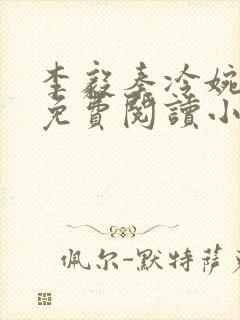 李毅秦冷婉
免費閱讀小
佩尔-默特萨